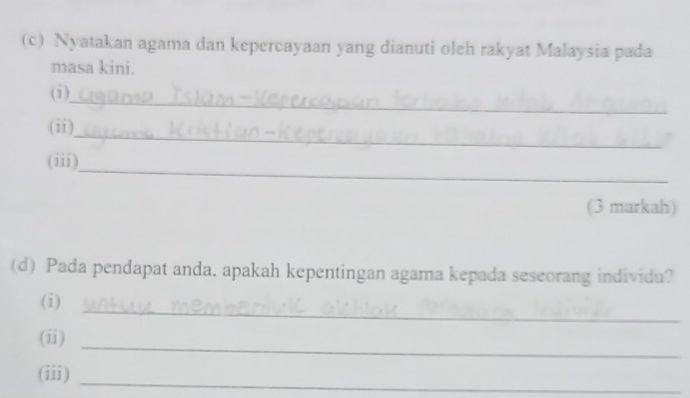 (c) Nyatakan agama dan kepercayaan yang dianuti oleh rakyat Malaysia pada
masa kini.
(i) agama Islam - Kepercayaan kitab Al-quran
(ii) agama Kristian - Kepercayaan kitab
(iii)
(3 markah)
(d) Pada pendapat anda, apakah kepentingan agama kepada seseorang individu?
(i) untuk membentuk akhlak individu
(ii)
(iii)